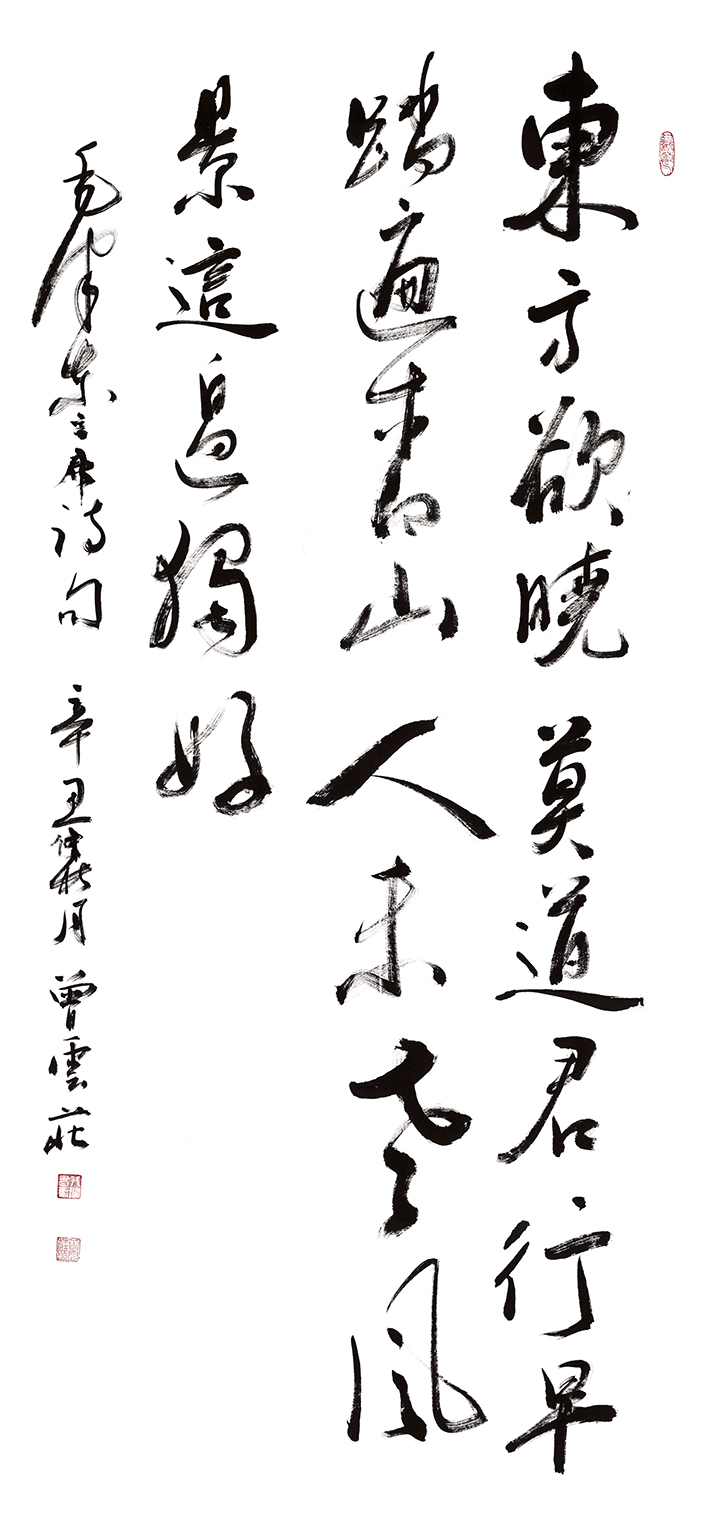 東方欲曉莫道君行早
踏遍青山人未老風
景這邊獨好
毛澤东主席詩句 辛丑仲秋月 曾雲莊